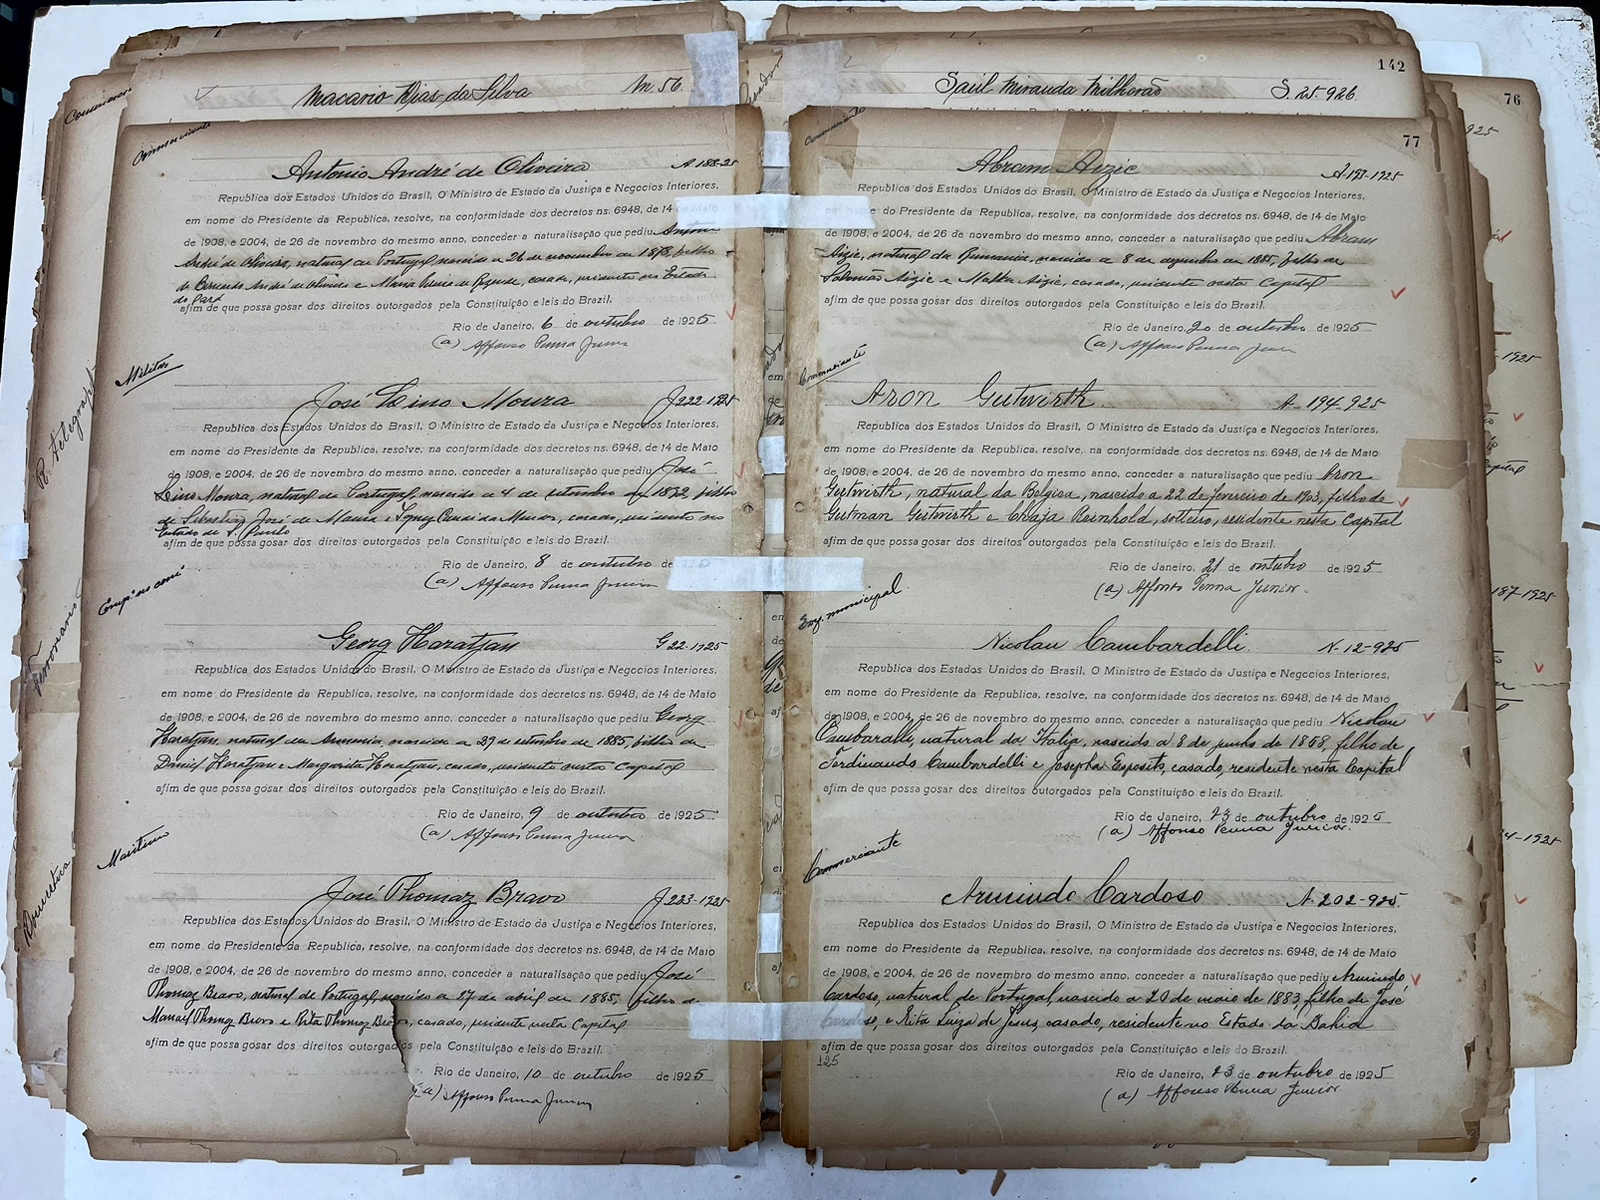 Macario Dias da Silva M. 56
Commerciante
Antonio André de Oliveira A 188-25
Republica dos Estados Unidos do Brasil, O Ministro de Estado da Justiça e Negocios Interiores,
em nome do Presidente da Republica, resolve, na conformidade dos decretos ns. 6948, de 14 de Maio
de 1908, e 2004, de 26 de novembro do mesmo anno, conceder a naturalisação que pediu Antonio
André de Oliveira, natural de Portugal, nascido a 26 de novembro de 1873, filho
de Bernardo André de Oliveira e Maria de Rezende, casado, residente no Estado
do Pará
afim de que possa gosar dos direitos outorgados pela Constituição e leis do Brazil.
Rio de Janeiro, 6 de outubro de 1925
(a) Affonso Penna Junior
Militar
José Lino Moura J 222-1925
Republica dos Estados Unidos do Brasil, O Ministro de Estado da Justiça e Negocios Interiores,
em nome do Presidente da Republica, resolve, na conformidade dos decretos ns. 6948, de 14 de Maio
de 1908, e 2004, de 26 de novembro do mesmo anno, conceder a naturalisação que pediu José
Lino Moura, natural de Portugal, nascido a 4 de setembro de 1872, filho
de José de Moura e Ignez Candida casado, residente no
Estado de S. Paulo
afim de que possa gosar dos direitos outorgados pela Constituição e leis do Brazil.
Rio de Janeiro, 8 de outubro de
(a) Affonso Penna Junior
Georg Haratjan G 22-1925
Republica dos Estados Unidos do Brasil, O Ministro de Estado da Justiça e Negocios Interiores,
em nome do Presidente da Republica, resolve, na conformidade dos decretos ns. 6948, de 14 de Maio
de 1908, e 2004, de 26 de novembro do mesmo anno, conceder a naturalisação que pediu Georg
Haratjan, natural da Armenia, nascido a 29 de setembro de 1885, filho de
Daniel Haratjan e Margarita Haratjan, casado, residente nesta Capital
afim de que possa gosar dos direitos outorgados pela Constituição e leis do Brazil.
Rio de Janeiro, 9 de outubro de 1925
(a) Affonso Penna Junior
Maritimo
José Thomaz Bravo J 223-1925
Republica dos Estados Unidos do Brasil, O Ministro de Estado da Justiça e Negocios Interiores,
em nome do Presidente da Republica, resolve, na conformidade dos decretos ns. 6948, de 14 de Maio
de 1908, e 2004, de 26 de novembro do mesmo anno, conceder a naturalisação que pediu José
Thomaz Bravo, natural de Portugal, nascido a 27 de abril de 1885, filho de
Manoel Thomaz Bravo e Rita Thomaz Bravo, casado, residente nesta Capital
afim de que possa gosar dos direitos outorgados pela Constituição e leis do Brazil.
Rio de Janeiro, 10 de outubro de 1925
(a) Affonso Penna Junior
142
Saul Miranda Milhorão S. 25.926
76
77
Abram Aizic A-191-1925
Republica dos Estados Unidos do Brasil, O Ministro de Estado da Justiça e Negocios Interiores,
em nome do Presidente da Republica, resolve, na conformidade dos decretos ns. 6948, de 14 de Maio
de 1908, e 2004, de 26 de novembro do mesmo anno, conceder a naturalisação que pediu Abram
Aizic, natural da Rumania, nascido a 8 de dezembro de 1885, filho de
Salomão Aizic e Malka Aizic, casado, residente nesta Capital
afim de que possa gosar dos direitos outorgados pela Constituição e leis do Brazil.
Rio de Janeiro, 20 de outubro de 1925
(a) Affonso Penna Junior
Commerciante
Aron Gutwirth A-194-925
Republica dos Estados Unidos do Brasil, O Ministro de Estado da Justiça e Negocios Interiores,
em nome do Presidente da Republica, resolve, na conformidade dos decretos ns. 6948, de 14 de Maio
de 1908, e 2004, de 26 de novembro do mesmo anno, conceder a naturalisação que pediu Aron
Gutwirth, natural da Belgica, nascido a 22 de fevereiro de 1903, filho de
Gutman Gutwirth e Chaja Reinhold, solteiro, residente nesta Capital
afim de que possa gosar dos direitos outorgados pela Constituição e leis do Brazil.
Rio de Janeiro, 21 de outubro de 1925
(a) Affonso Penna Junior.
Emp. municipal
Nicolau Cambardelli N-12-925
Republica dos Estados Unidos do Brasil, O Ministro de Estado da Justiça e Negocios Interiores,
em nome do Presidente da Republica, resolve, na conformidade dos decretos ns. 6948, de 14 de Maio
de 1908, e 2004, de 26 de novembro do mesmo anno, conceder a naturalisação que pediu Nicolau
Cambaralli, natural da Italia, nascido a 8 de junho de 1858, filho de
Ferdinando Cambardelli e Josepha Esposito, casado, residente nesta Capital
afim de que possa gosar dos direitos outorgados pela Constituição e leis do Brazil.
Rio de Janeiro, 23 de outubro de 1925
(a) Affonso Penna Junior.
Commerciante
Armindo Cardoso A-202-925
Republica dos Estados Unidos do Brasil, O Ministro de Estado da Justiça e Negocios Interiores,
em nome do Presidente da Republica, resolve, na conformidade dos decretos ns. 6948, de 14 de Maio
de 1908, e 2004, de 26 de novembro do mesmo anno, conceder a naturalisação que pediu Armindo
Cardoso, natural de Portugal, nascido a 20 de maio de 1883, filho de José
Cardoso, e Rita Luiza de Jesus, casado, residente no Estado da Bahia
afim de que possa gosar dos direitos outorgados pela Constituição e leis do Brazil.
125
Rio de Janeiro, 23 de outubro de 1925
(a) Affonso Penna Junior